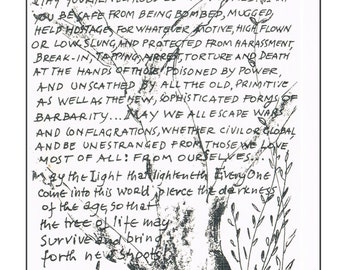 YOU BE SAFE FROM BEING BOMBED, MUGGED,
HELD HOSTAGE, FOR WHATEVER MOTIVE, HIGH FLOWN
OR LOW SLUNG, AND PROTECTED FROM HARASSMENT,
BREAK-IN, TAPPING, ARREST, TORTURE AND DEATH
AT THE HANDS OF THOSE POISONED BY POWER,
AND UNSCATHED BY ALL THE OLD, PRIMITIVE
AS WELL AS THE NEW, SOPHISTICATED FORMS OF
BARBARITY... MAY WE ALL ESCAPE WARS
AND CONFLAGRATIONS, WHETHER CIVIL OR GLOBAL
AND BE UNESTRANGED FROM THOSE WE LOVE
MOST OF ALL: FROM OURSELVES...
May the Light that lighteneth Every One
come into this World pierce the darkness
of the age, so that
the tree of life may
survive and bring
forth new shoots